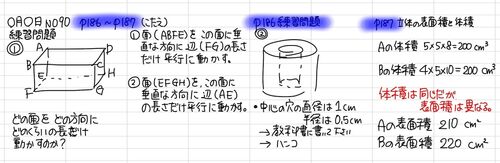 〇月〇日 No90 P186〜P187 (こたえ)
練習問題
①
A
D
B
C
E
H
F
G
どの面を どの方向に
どのくらいの長さだけ
動かすのか?
①面(ABFE)を この面に
垂直な方向に 辺(FG)の長さ
だけ 平行に動かす。
②面(EFGH)を、この面に
垂直な方向に 辺(AE)
の長さだけ平行に動かす。
P186 練習問題
②
・中心の穴の直径は1cm
半径は0.5cm
→教科書に書いて下さい
→ハンコ
P187 立体の表面積と体積
Aの体積 5×5×8=200cm³
Bの体積 4×5×10=200cm³
体積は同じだが
表面積は異なる。
Aの表面積 210cm²
Bの表面積 220cm²